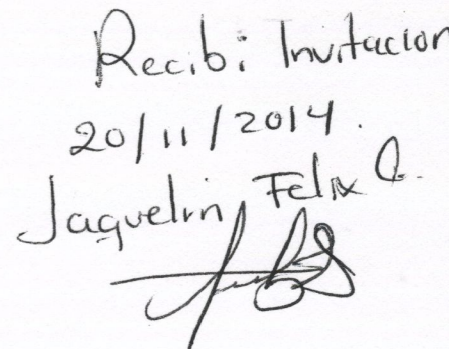 Recibi Invitacion
20/11/2014.
Jaquelin Felix